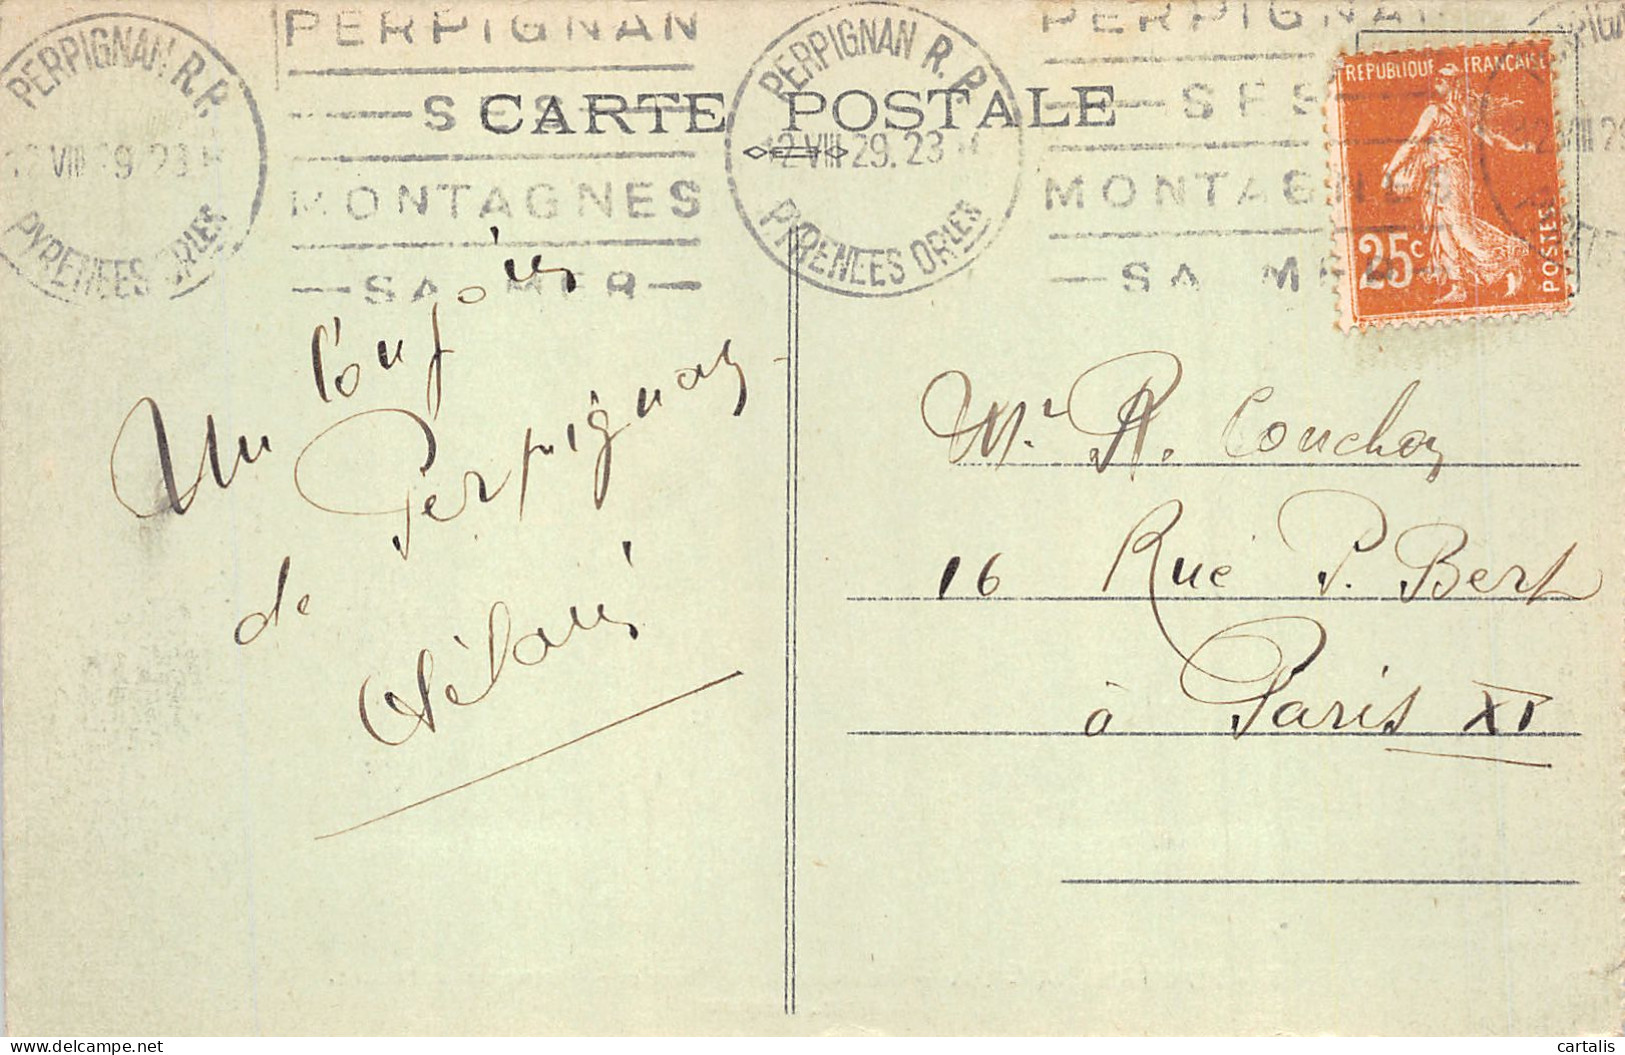 PERPIGNAN R.P.
12 VIII 29. 23 H
PYRENEES ORLES
PERPIGNAN
SES
MONTAGNES
SA MER
PERPIGNAN R.P.
12 VIII 29. 23 H
PYRENEES ORLES
PERPIGNAN
SES
MONTAGNES
SA MER
CARTE POSTALE
REPUBLIQUE FRANÇAISE
25c
POSTES
Un bonjour
de Perpignan
Mr R. Couchoy
16 Rue P. Bert
à Paris XI
cartalis